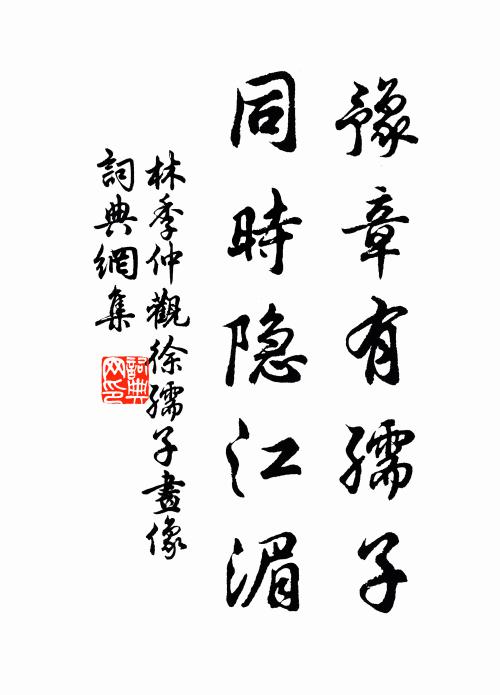 豫章有孺子
同時隐江湄
林季仲觀徐孺子畫像
詞典網集
詞典网印